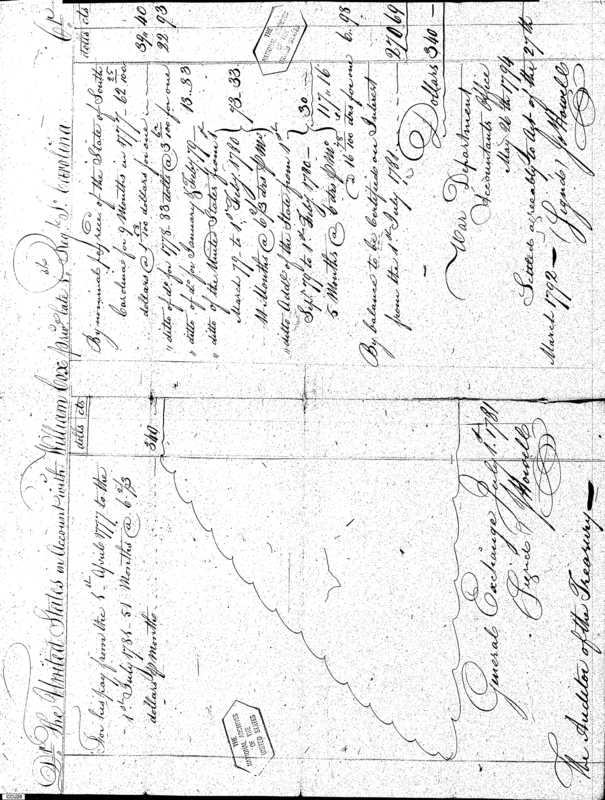 Dr. The United States in Account with William Cox private 3d Regt. So. Carolina Cr.
dolls cts
For his pay from the 5th April 1777 to the
1st July 1781. 51 Months @ 6 2/3
dollars p Month 340
THE
NATIONAL ARCHIVES
OF THE
UNITED STATES
General Exchange July 1st 1781
Signed J Howell
The Auditor of the Treasury
dolls cts
By nominal pay recd of the State of South
Carolina for 9 Months in 1777 62 25/100
dollars @ dollars for one 39. 40
ditto of do for 1778. 83 dolls @ 3 100 for one 22 93
ditto of do for January & Feby 79 13.33
ditto of the United States from 1st
March 79 to 1st Feby 1780 73.33
11 Months @ 6 2/3 drs p Mo
ditto Addl of the State from 1st
Sept 79 to 1st Feby 1780 30
5 Months @ 6 drs p Mo 117.16
@ 16 78/100 drs for one 6.98
By balance to be Certified on Interest
from the 1st July 1781 270.69
Dollars 340
War Department
Accountants Office
May 26th 1794
Settled agreeably to act of the 27th
March 1792
(Signed) J Howell